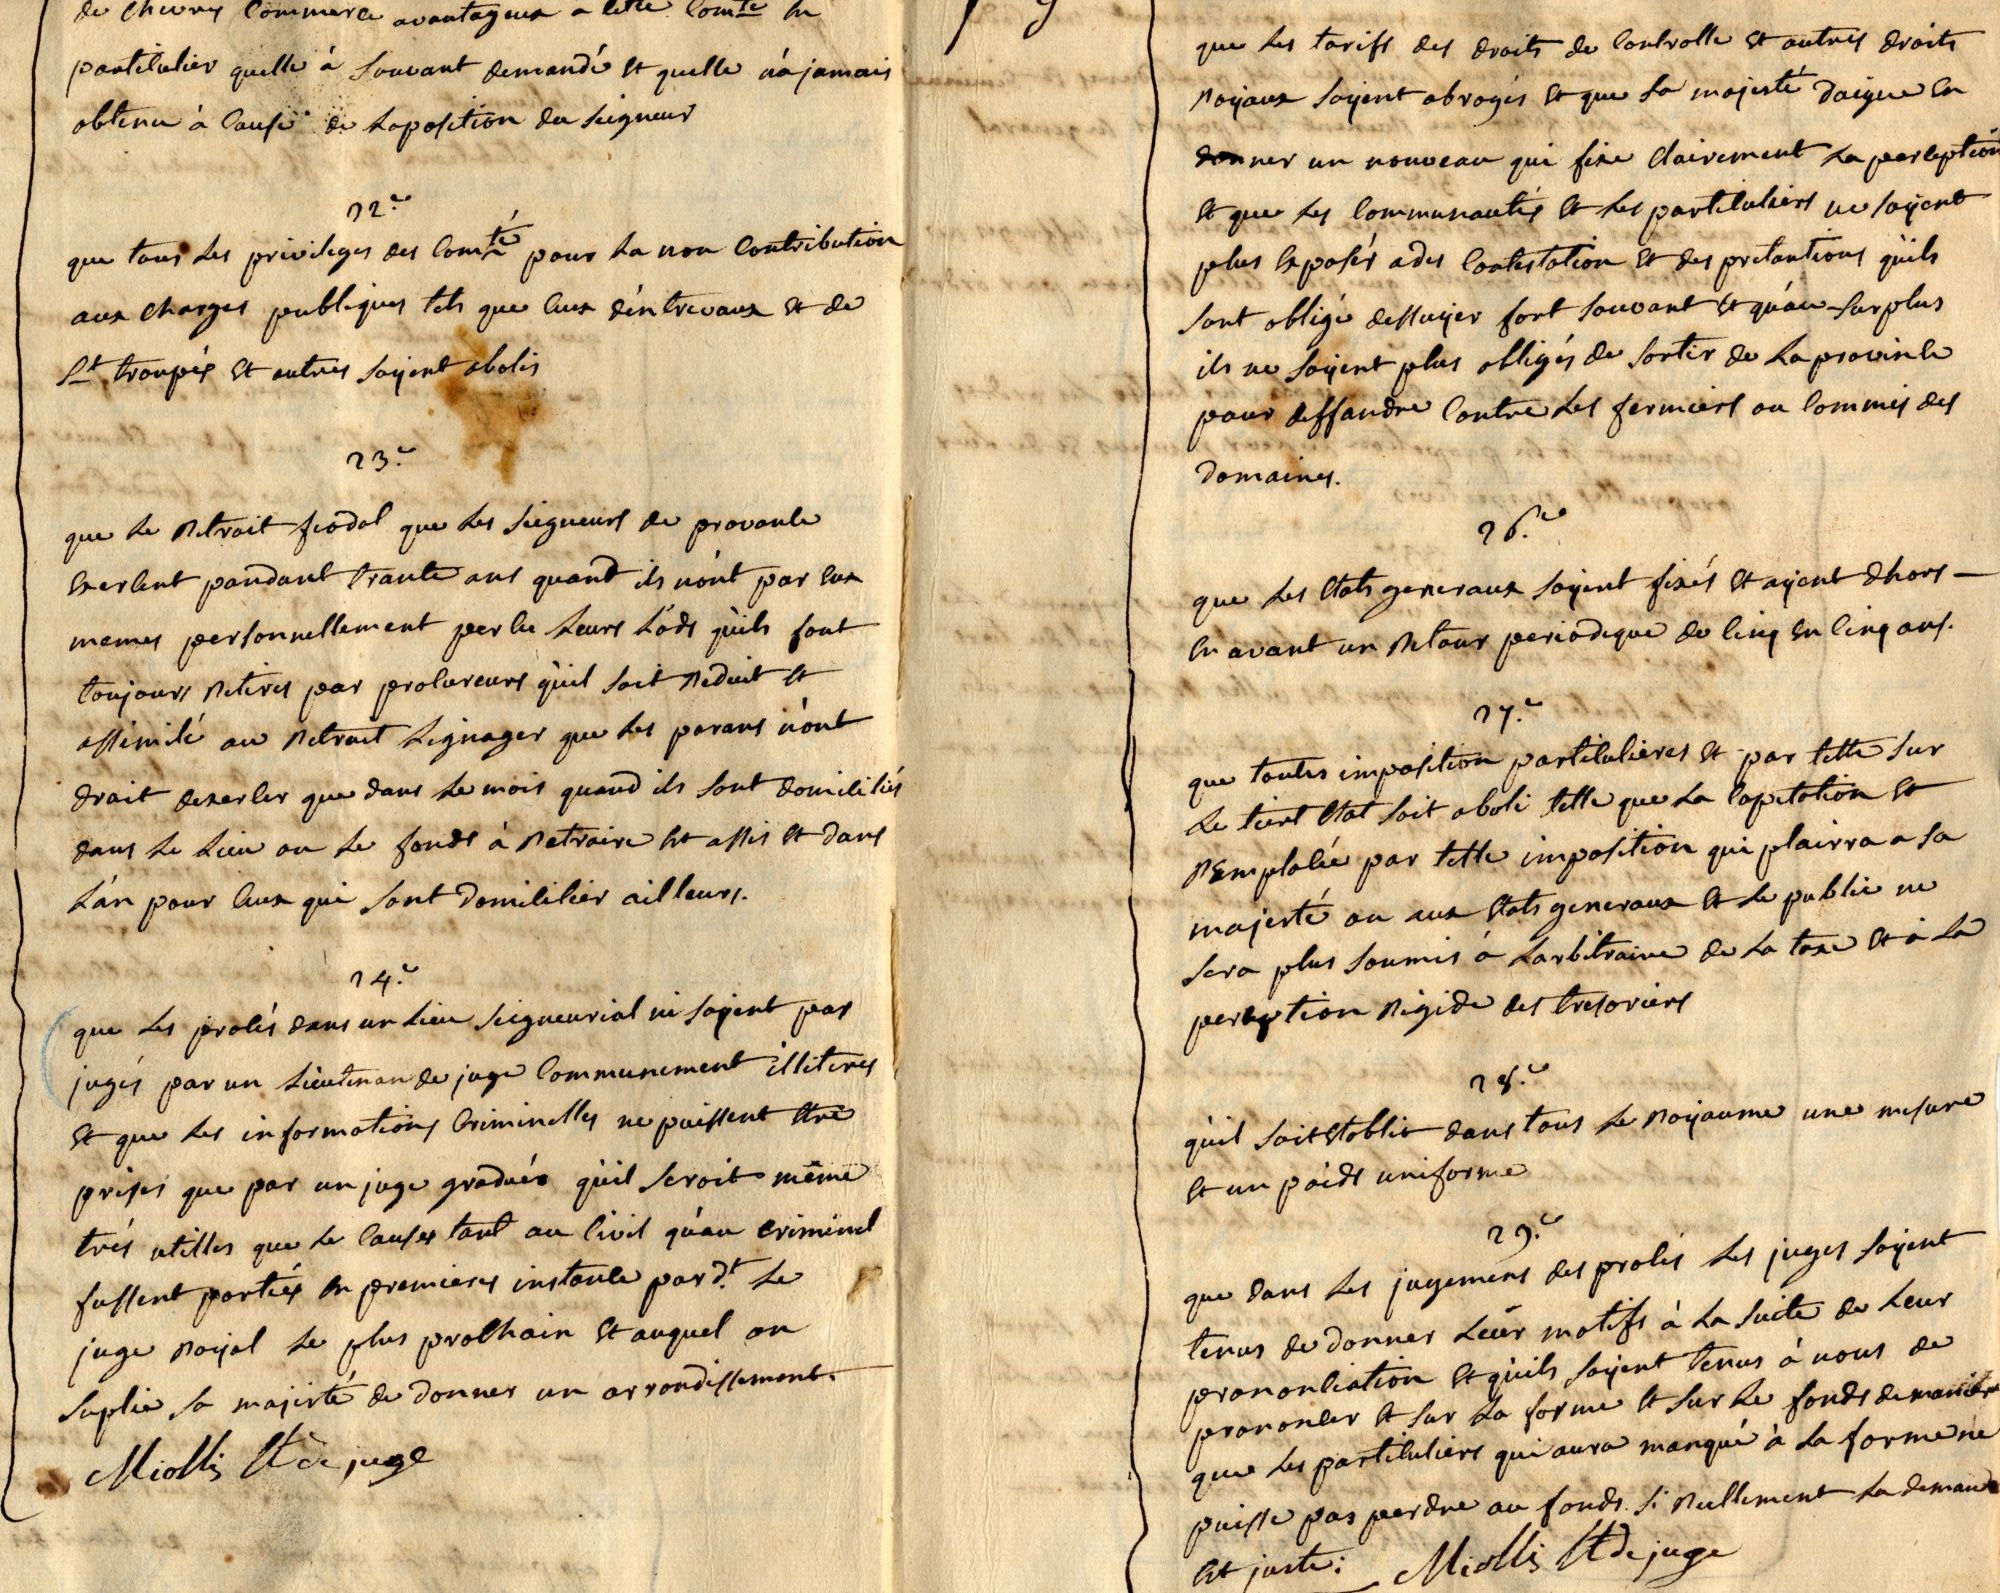 de chevres commerce avantageux a cette Com.te en
particulier quelle à souvant demandé et quelle n'a jamais
obtenu à cause de Loposition du seigneur
22.e
que tous Les privileges des Com.té pour La non contribution
aux charges publiques tels que ceux d'entrevaux et de
S.t troupés et autres soyent abolis
23.e
que Le Retrait feodal que Les seigneurs de provance
exercent pandant trante ans quand ils nónt par eux
memes personnellement percu Leurs Lóds qùils font
toujours Retires par procureurs qùil soit Reduit et
assimilé au Retrait Lignager que Les parans n'ont
droit dexercer que dans Le mois quand ils sont domiciliés
dans Le Lieu ou Le fonds à Retraire est assis et dans
L'an pour ceux qui sont domicilier ailleurs.
24.e
que Les procés dans un Lieu seigneurial ni soyent pas
jugés par un Lieutenan de juge communement illiteres
et que Les informations criminelles ne puissent etre
prises que par un juge gradués qùil seroit même
trés utilles que Le causes tant au civil qu'au criminel
fussent portiés en premieres instance pard.t Le
juge Royal Le plus prochain et auquel on
suplie sa majesté de donner un arrondissement.
Miollis Lt de juge
que Les tarifs des droits de controlle et autres droits
Royaux soyent abrogés et que sa majesté daigne en
donner un nouveau qui fixe clairement La perception
et que Les communautés et Les particuliers ne soyent
plus exposés a des contestation et des pretantions qùils
sont obligé dessuyer fort souvant et qu'au surplus
ils ne soyent plus obligés de sortir de La province
pour deffandre contre Les fermiers ou commis des
domaines.
26.e
que Les Etats generaux soyent fixés et ayent dhors-
en avant un Retour periodique de cinq en cinq ans.
27.e
que toutes imposition particulieres et par tette sur
Le tiert Etat soit aboli telle que La Capitation et
REmplacée par telle imposition qui plairra a sa
majesté ou aux Etats generaux et Le public ne
sera plus soumis á Larbitraire de La taxe et à La
perception Rigide des tresoriers
28.e
qùil soit Etablit dans tous Le Royaume une mesure
et un poids uniforme
29.e
que dans Les jugemens des procés Les juges soyent
tenus de donner Leur motifs à La suite de Leur
prononciation et qùils soyent tenus à nous de
prononcer et sur La forme et sur Le fonds de maniere
que Les particuliers qui aura manqué à La forme ne
puisse pas perdre au fonds si Réellement La demande
Est juste: Miollis Lt de juge